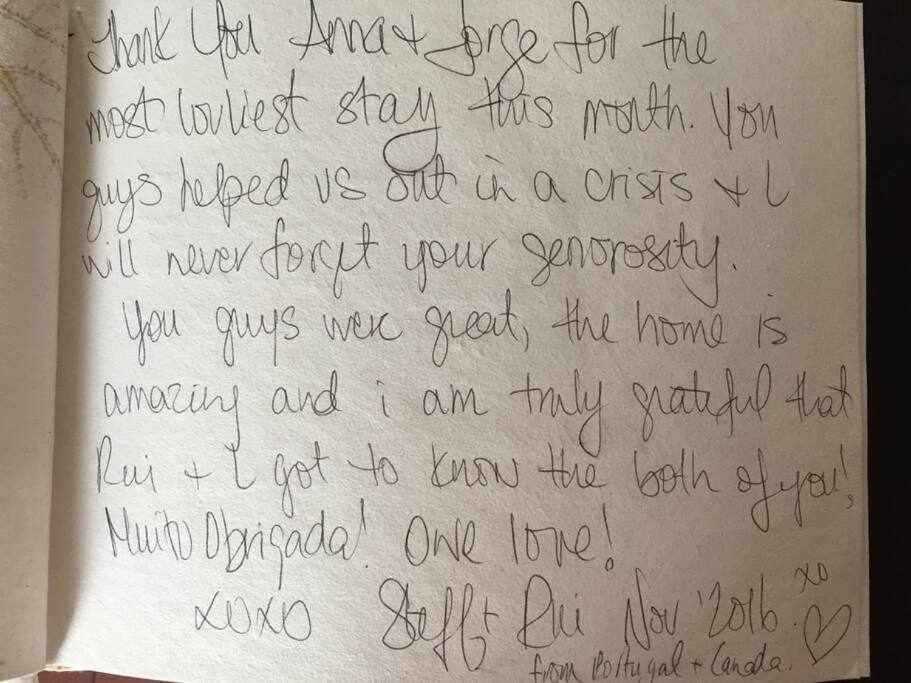 Thank You Anna + Jorge for the
most lovliest stay this month. You
guys helped us out in a crisis + I
will never forget your generosity.
You guys were great, the home is
amazing and i am truly grateful that
Rui + I got to know the both of you!
Muito Obrigada! One love!
xoxo Steff + Rui Nov '2016. xo
from Portugal + Canada.